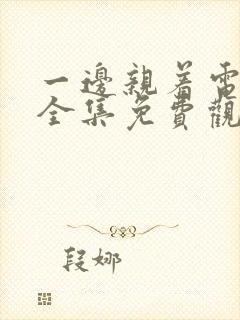 一邊親着電
全集免費觀
段娜